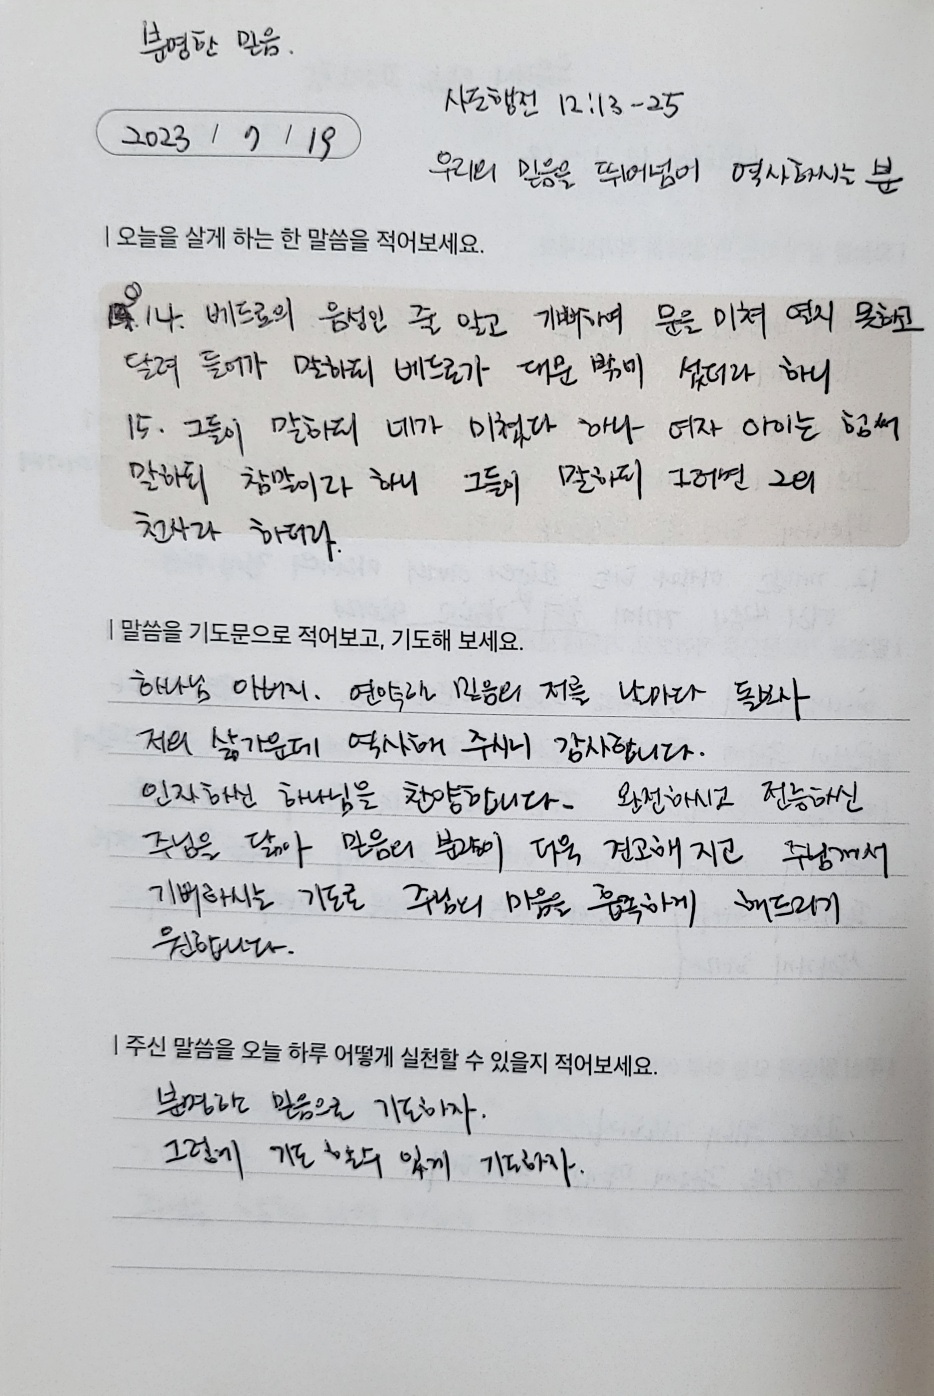 분명한 믿음.
사도행전 12:13-25
2023 / 7 / 19
우리의 믿음을 뛰어넘어 역사하시는 분
| 오늘을 살게 하는 한 말씀을 적어보세요.
14. 베드로의 음성인 줄 알고 기뻐하여 문을 미쳐 열지 못하고
달려 들어가 말하되 베드로가 대문 밖에 섰더라 하니
15. 그들이 말하되 네가 미쳤다 하나 여자 아이는 힘써
말하되 참말이라 하니 그들이 말하되 그러면 그의
천사라 하더라.
| 말씀을 기도문으로 적어보고, 기도해 보세요.
하나님 아버지. 연약한 믿음의 저를 날마다 돌보사
저의 삶가운데 역사해 주시니 감사합니다.
인자하신 하나님을 찬양합니다. 완전하시고 전능하신
주님을 닮아 믿음의 분량이 더욱 견고해 지고 주님께서
기뻐하시는 기도로 주님의 마음을 흡족하게 해드리기
원합니다.
| 주신 말씀을 오늘 하루 어떻게 실천할 수 있을지 적어보세요.
분명한 믿음으로 기도하자.
그렇게 기도 할수 있게 기도하자.